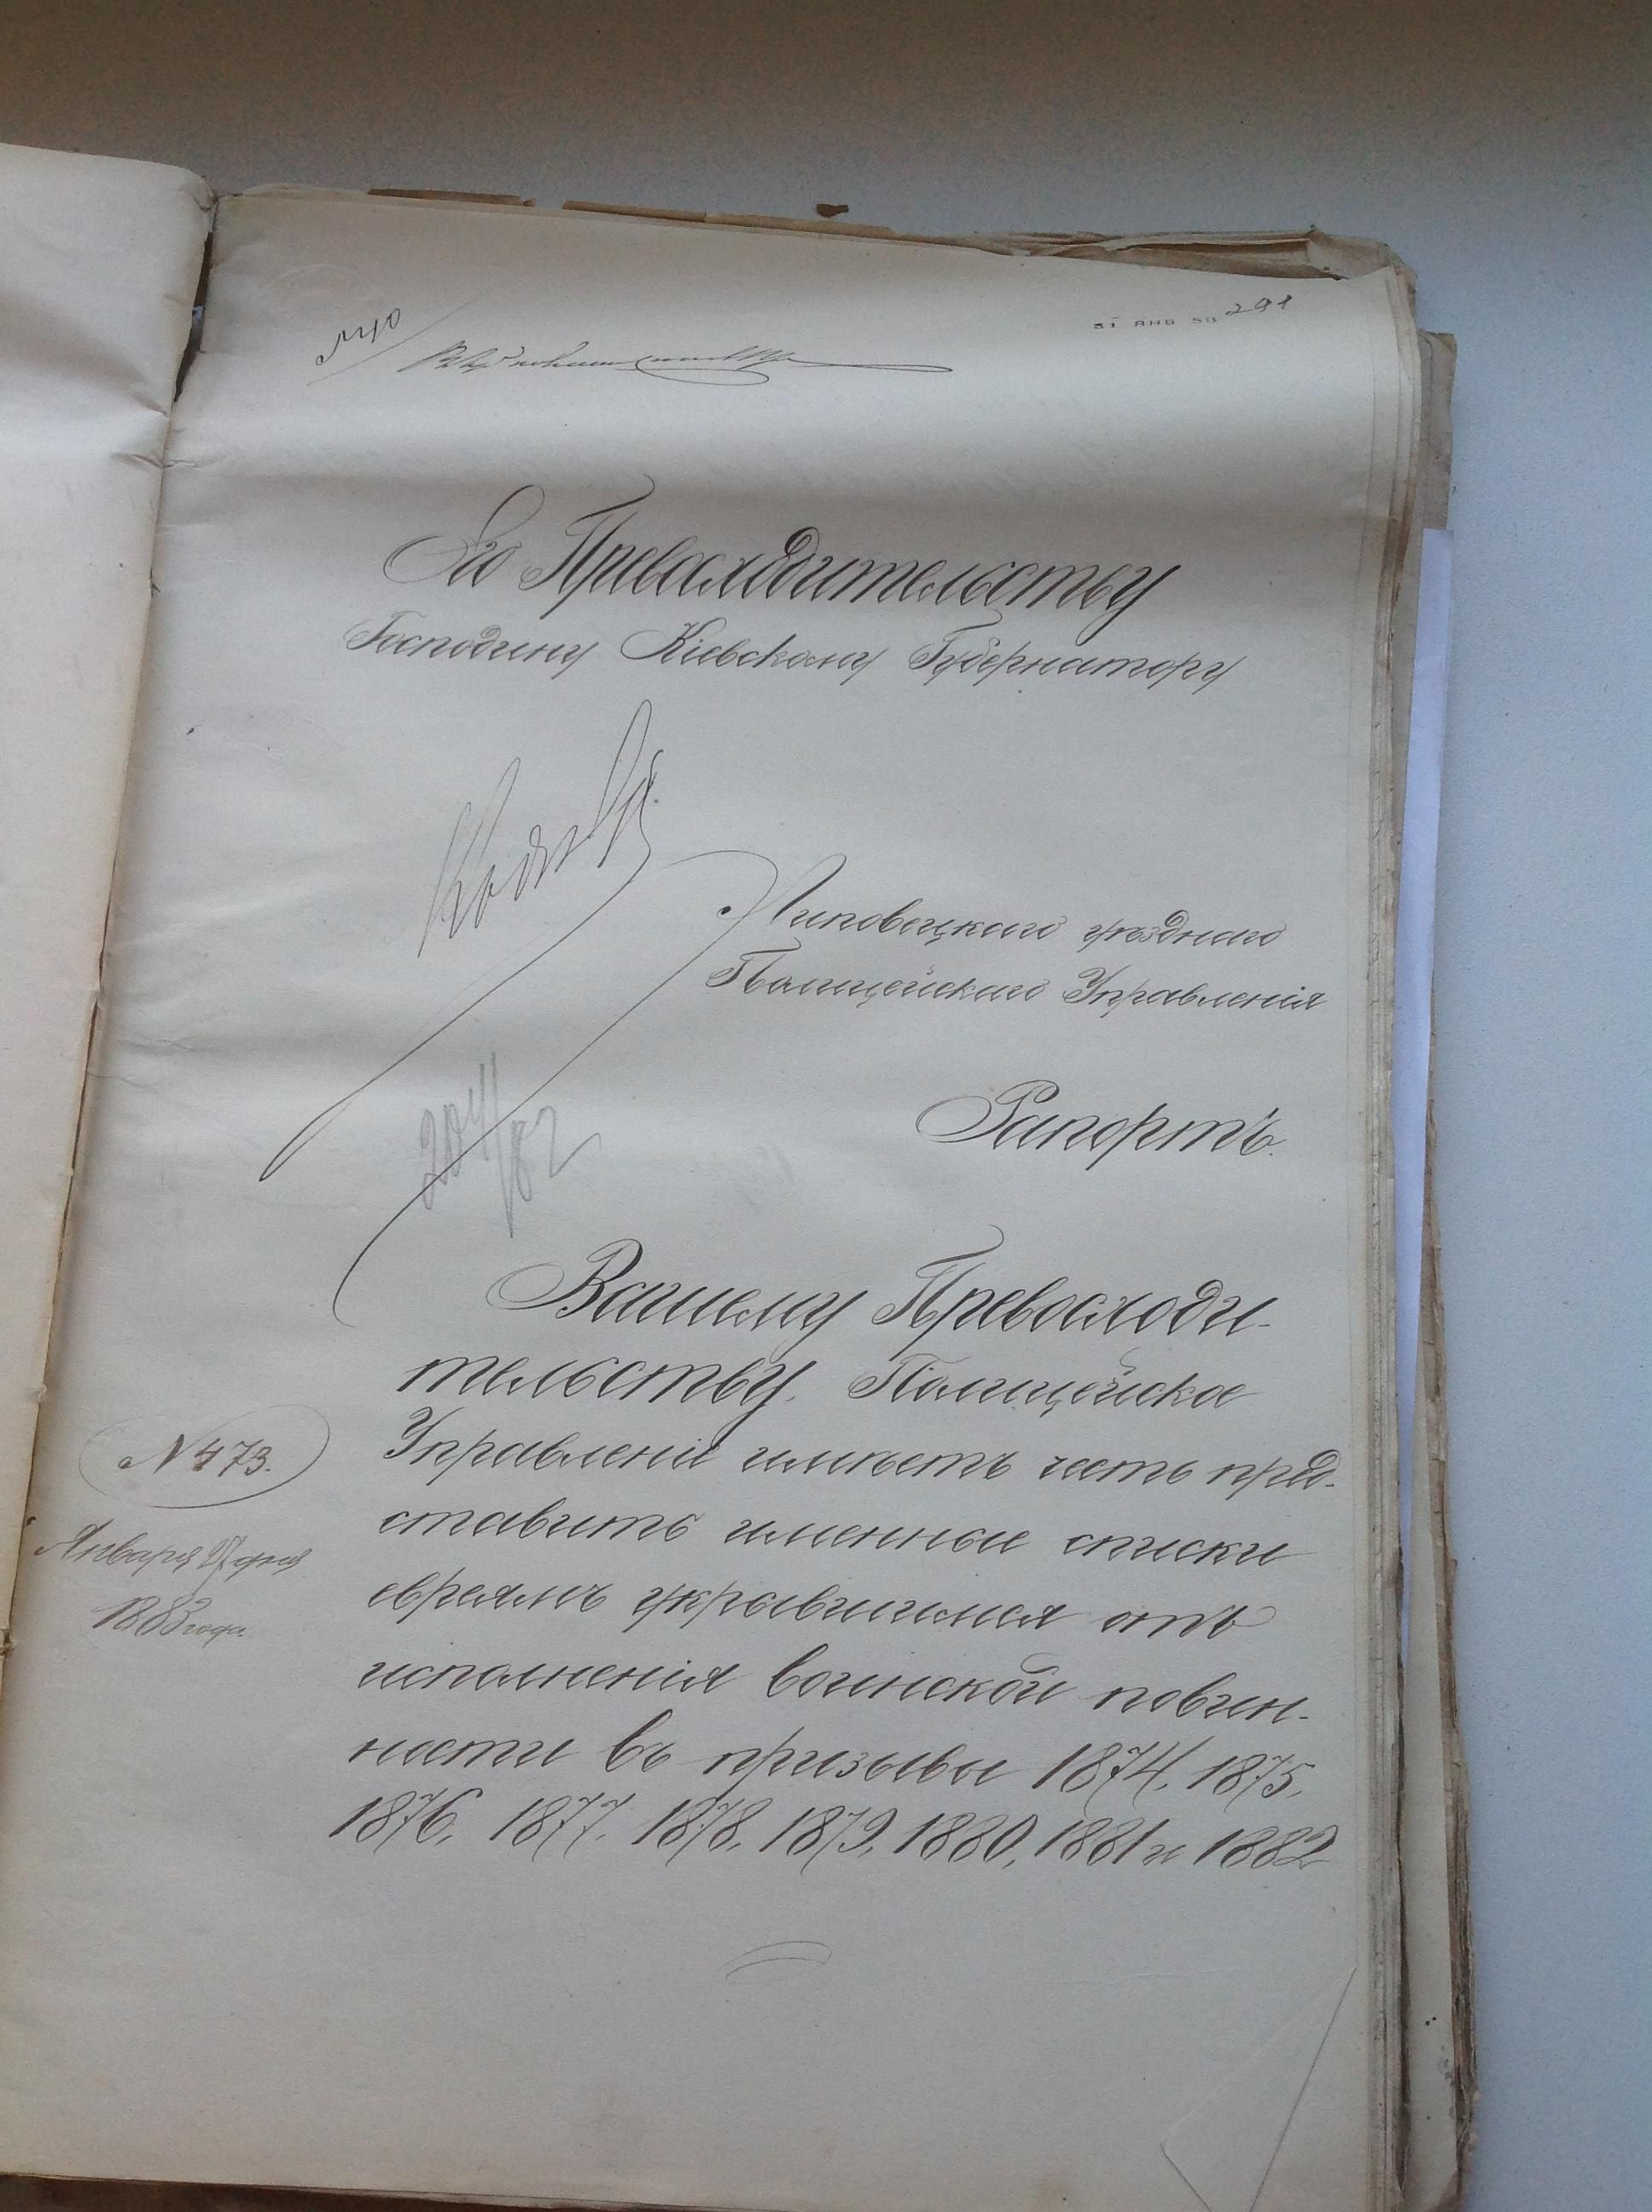 31 ЯНВ 83 291
Его Превосходительству
Господину Кіевскому Губернатору
Липовецкаго уѣзднаго
Полицейскаго Управленія
204/82
Рапортъ.
Вашему Превосходи-
тельству, Полицейское
Управленіе имѣетъ честь пред-
ставить именные списки
евреямъ укрывшимся отъ
исполненія воинской повин-
ности въ призывы 1874, 1875,
1876, 1877, 1878, 1879, 1880, 1881 и 1882
N 473.
Января 27 дня
1883 года